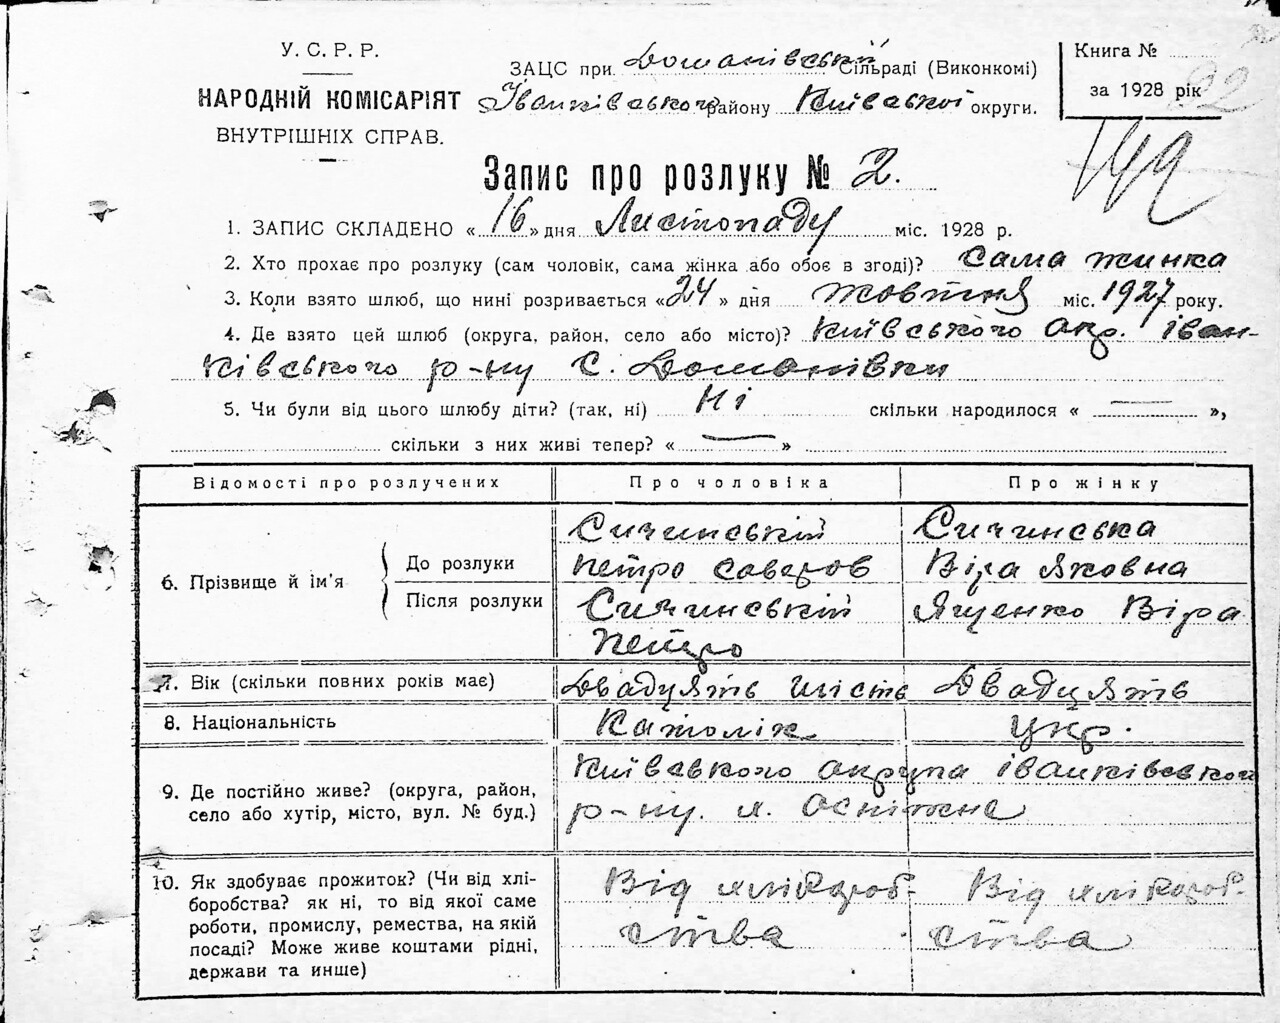 У. С. Р. Р.
НАРОДНІЙ КОМІСАРІЯТ
ВНУТРІШНІХ СПРАВ.
ЗАЦС при Доманівській Сільраді (Виконкомі)
Іванківського району Київської округи.
Книга №
за 1928 рік
22
142
Запис про розлуку № 2.
1. ЗАПИС СКЛАДЕНО « 16 » дня Листопаду міс. 1928 р.
2. Хто прохає про розлуку (сам чоловік, сама жінка або обоє в згоді)? сама жинка
3. Коли взято шлюб, що нині розривається « 24 » дня жовтня міс. 1927 року.
4. Де взято цей шлюб (округа, район, село або місто)? Київського окр. Іван-
ківського р-ну С. Доманівки
5. Чи були від цього шлюбу діти? (так, ні) Ні скільки народилося « — »,
скільки з них живі тепер? « — »
Відомості про розлучених Про чоловіка Про жінку
6. Прізвище й ім'я
До розлуки
Сичинській Петро
Сичинська Віра Яковна
Після розлуки
Сичинській Петро
Ященко Віра
7. Вік (скільки повних років має) Двадцять шість Двадцять
8. Національність Католік Укр.
9. Де постійно живе? (округа, район, село або хутір, місто, вул. № буд.)
Київського округа Іванківського
р-ну.
10. Як здобуває прожиток? (Чи від хлі-
боробства? як ні, то від якої саме
роботи, промислу, ремества, на якій
посаді? Може живе коштами рідні,
держави та инше)
Від хліборобства
Від хліборобства